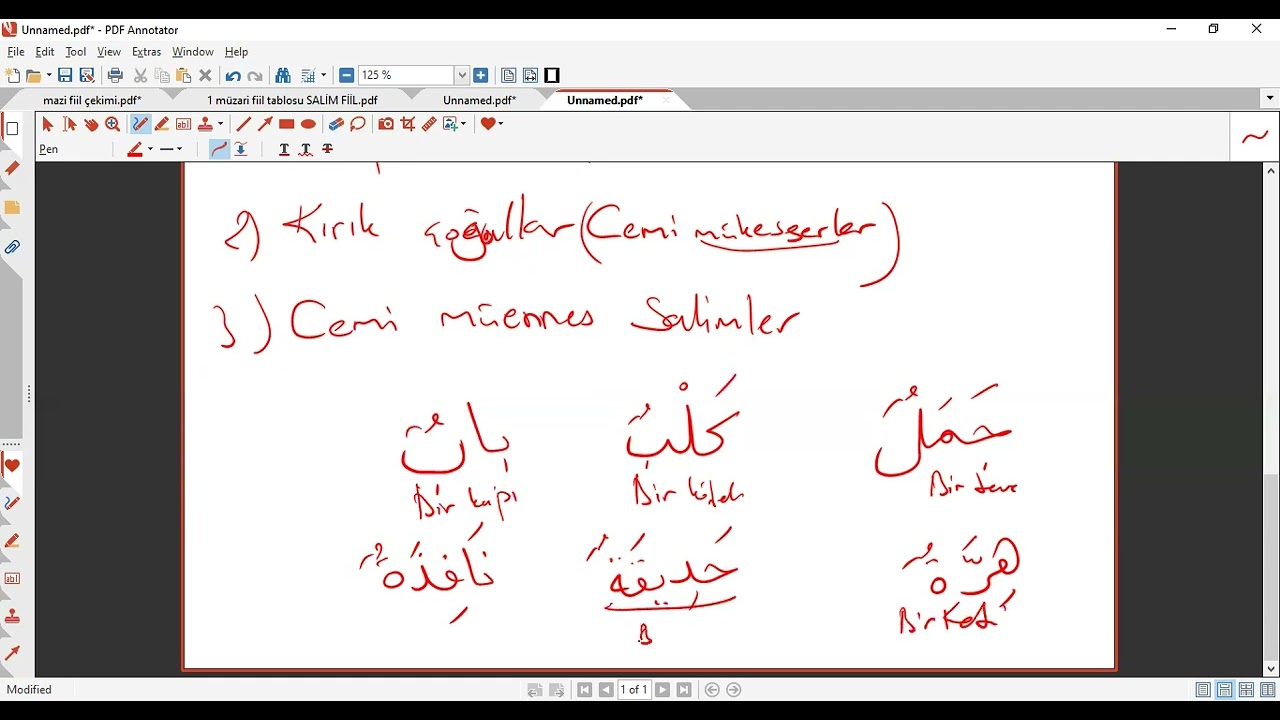 Unnamed.pdf* - PDF Annotator
File Edit Tool View Extras Window Help
125 %
mazi fiil çekimi.pdf* 1 müzari fiil tablosu SALİM FİİL.pdf Unnamed.pdf* Unnamed.pdf*
Pen
2) Kırık çoğullar (Cemi mükesserler)
3) Cemi müennes Salimler
حَمَلٌ كَلْبٌ بابٌ
Bir deve Bir köpek Bir kapı
هِرَّةٌ حَدِيقَةٌ نَافِذَةٌ
Bir Kedi B
Modified 1 of 1